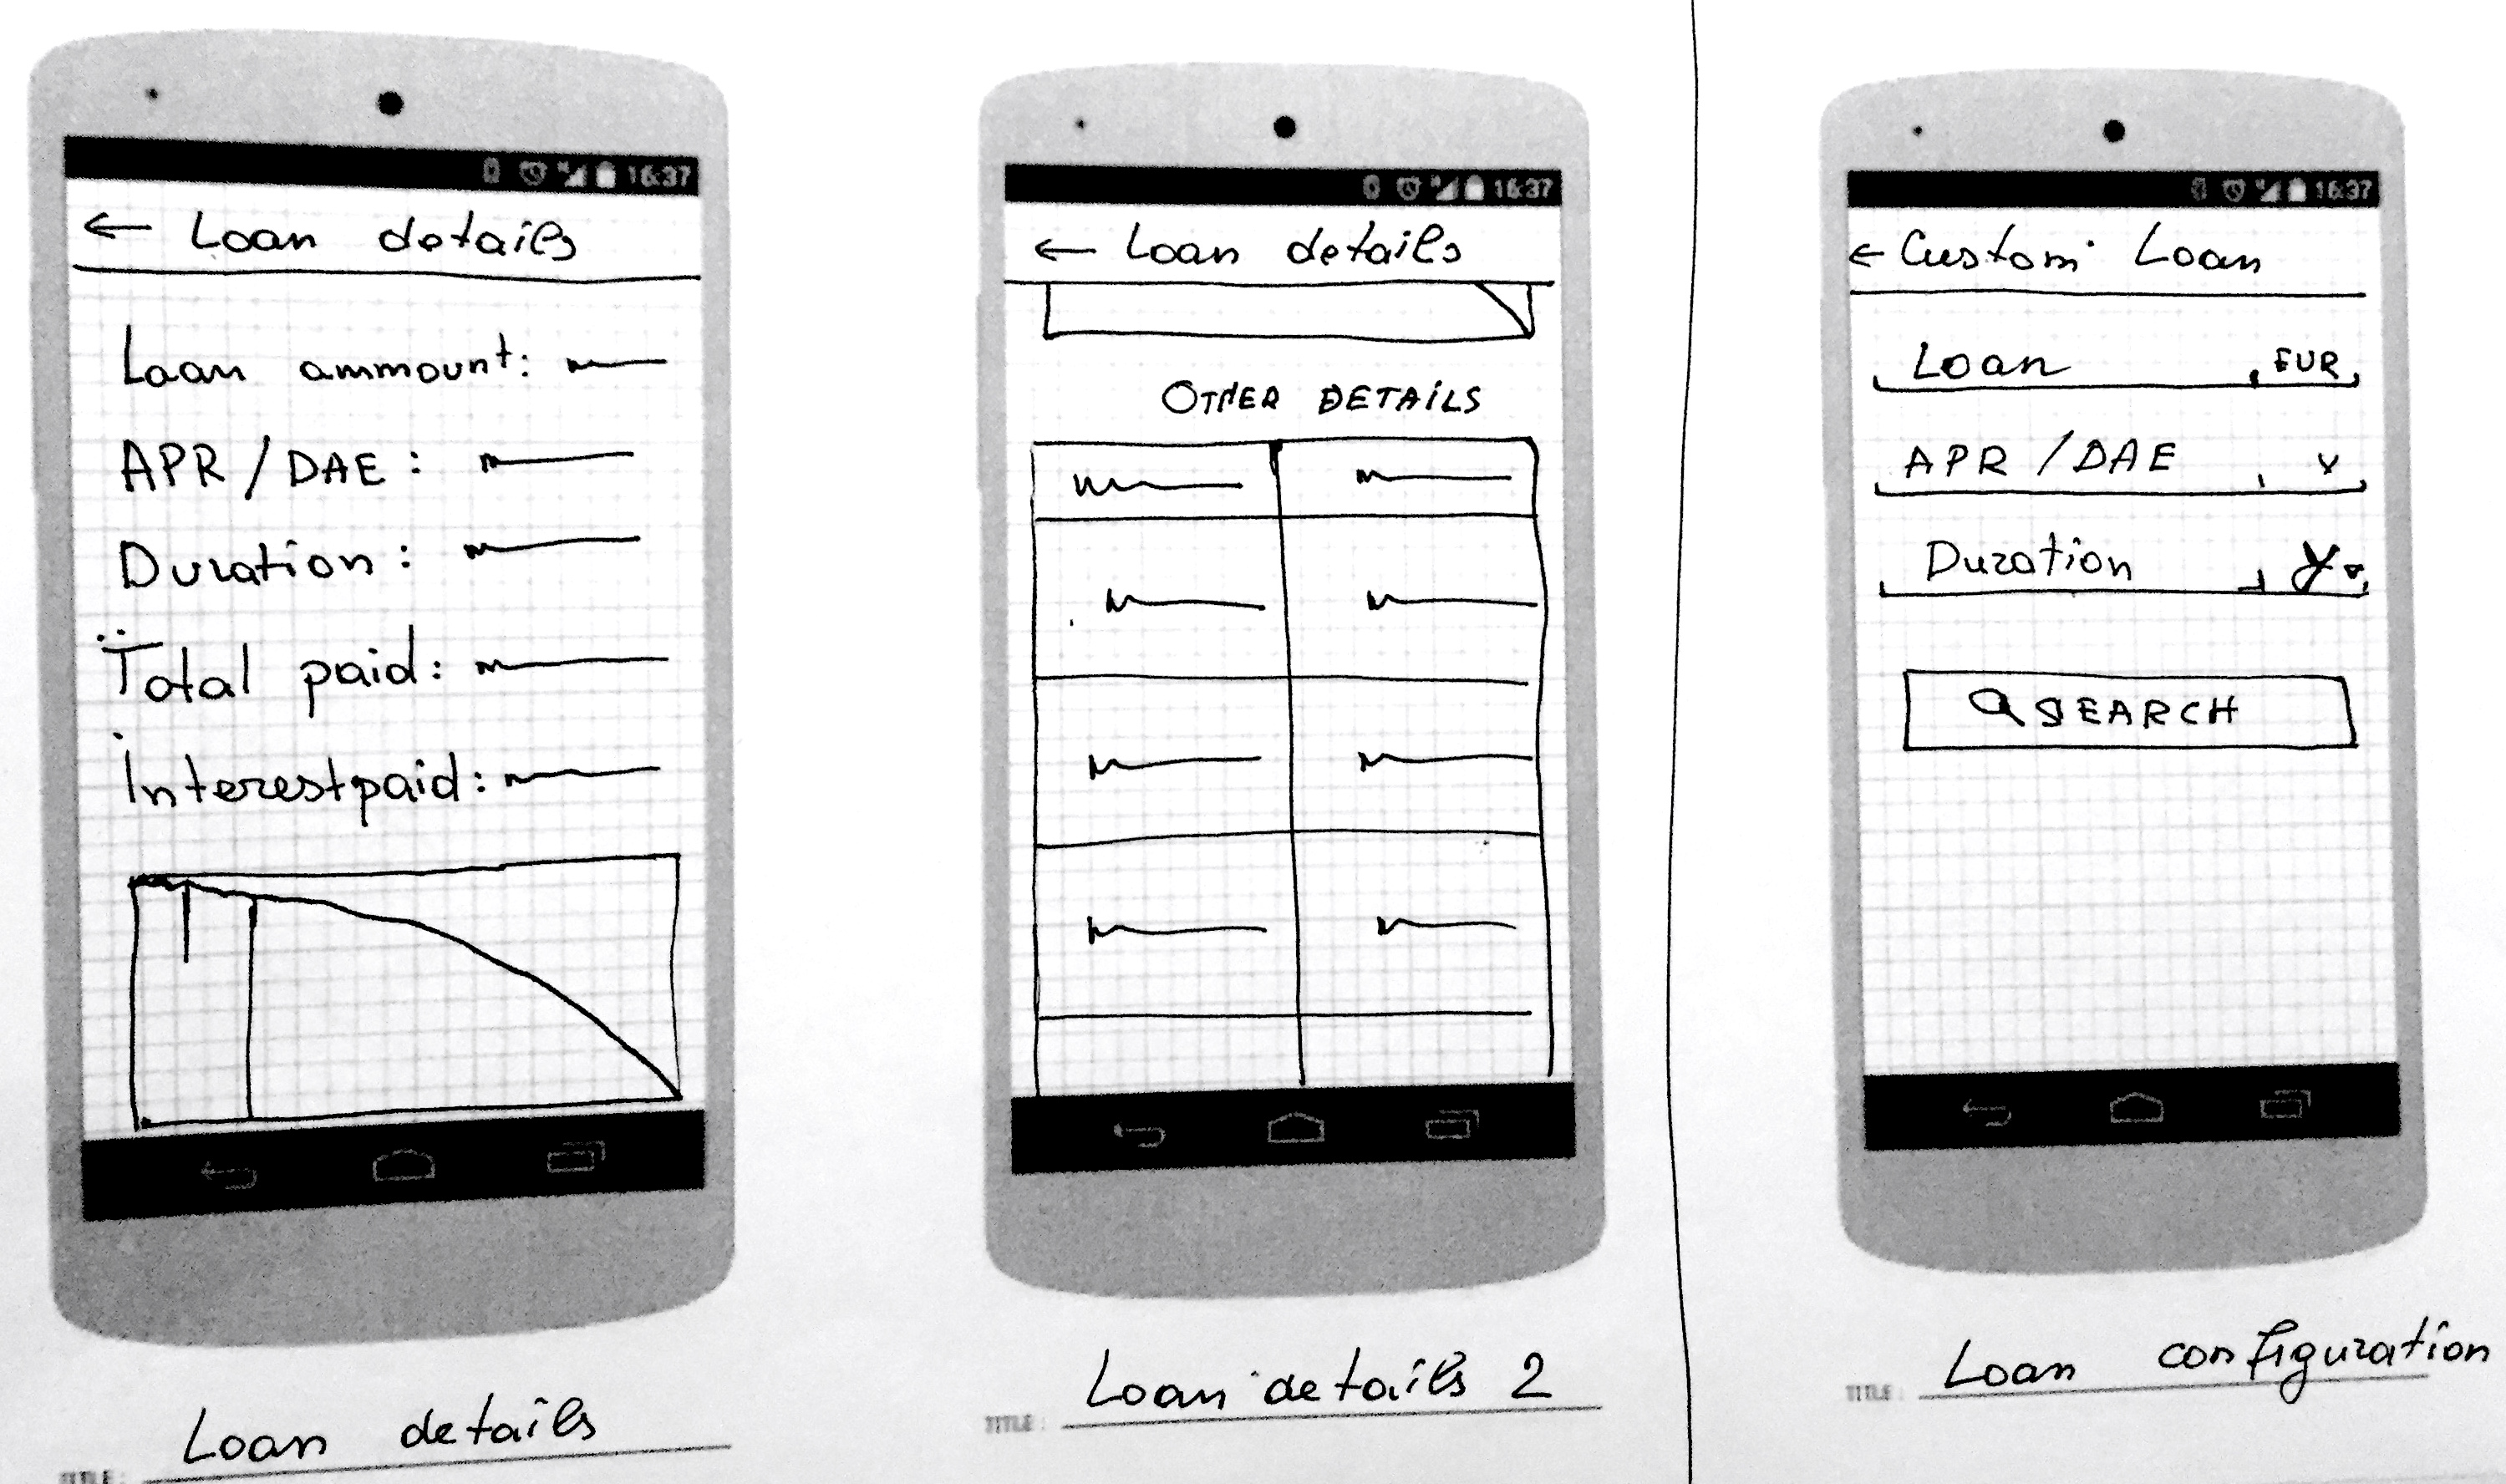 16:37
← Loan details
Loan ammount:
APR / DAE :
Duration :
Total paid:
Interest paid:
TITLE: Loan details
16:37
← Loan details
OTHER DETAILS
TITLE: Loan details 2
16:37
← Custom Loan
Loan EUR
APR / DAE
Duration Y
SEARCH
TITLE: Loan configuration